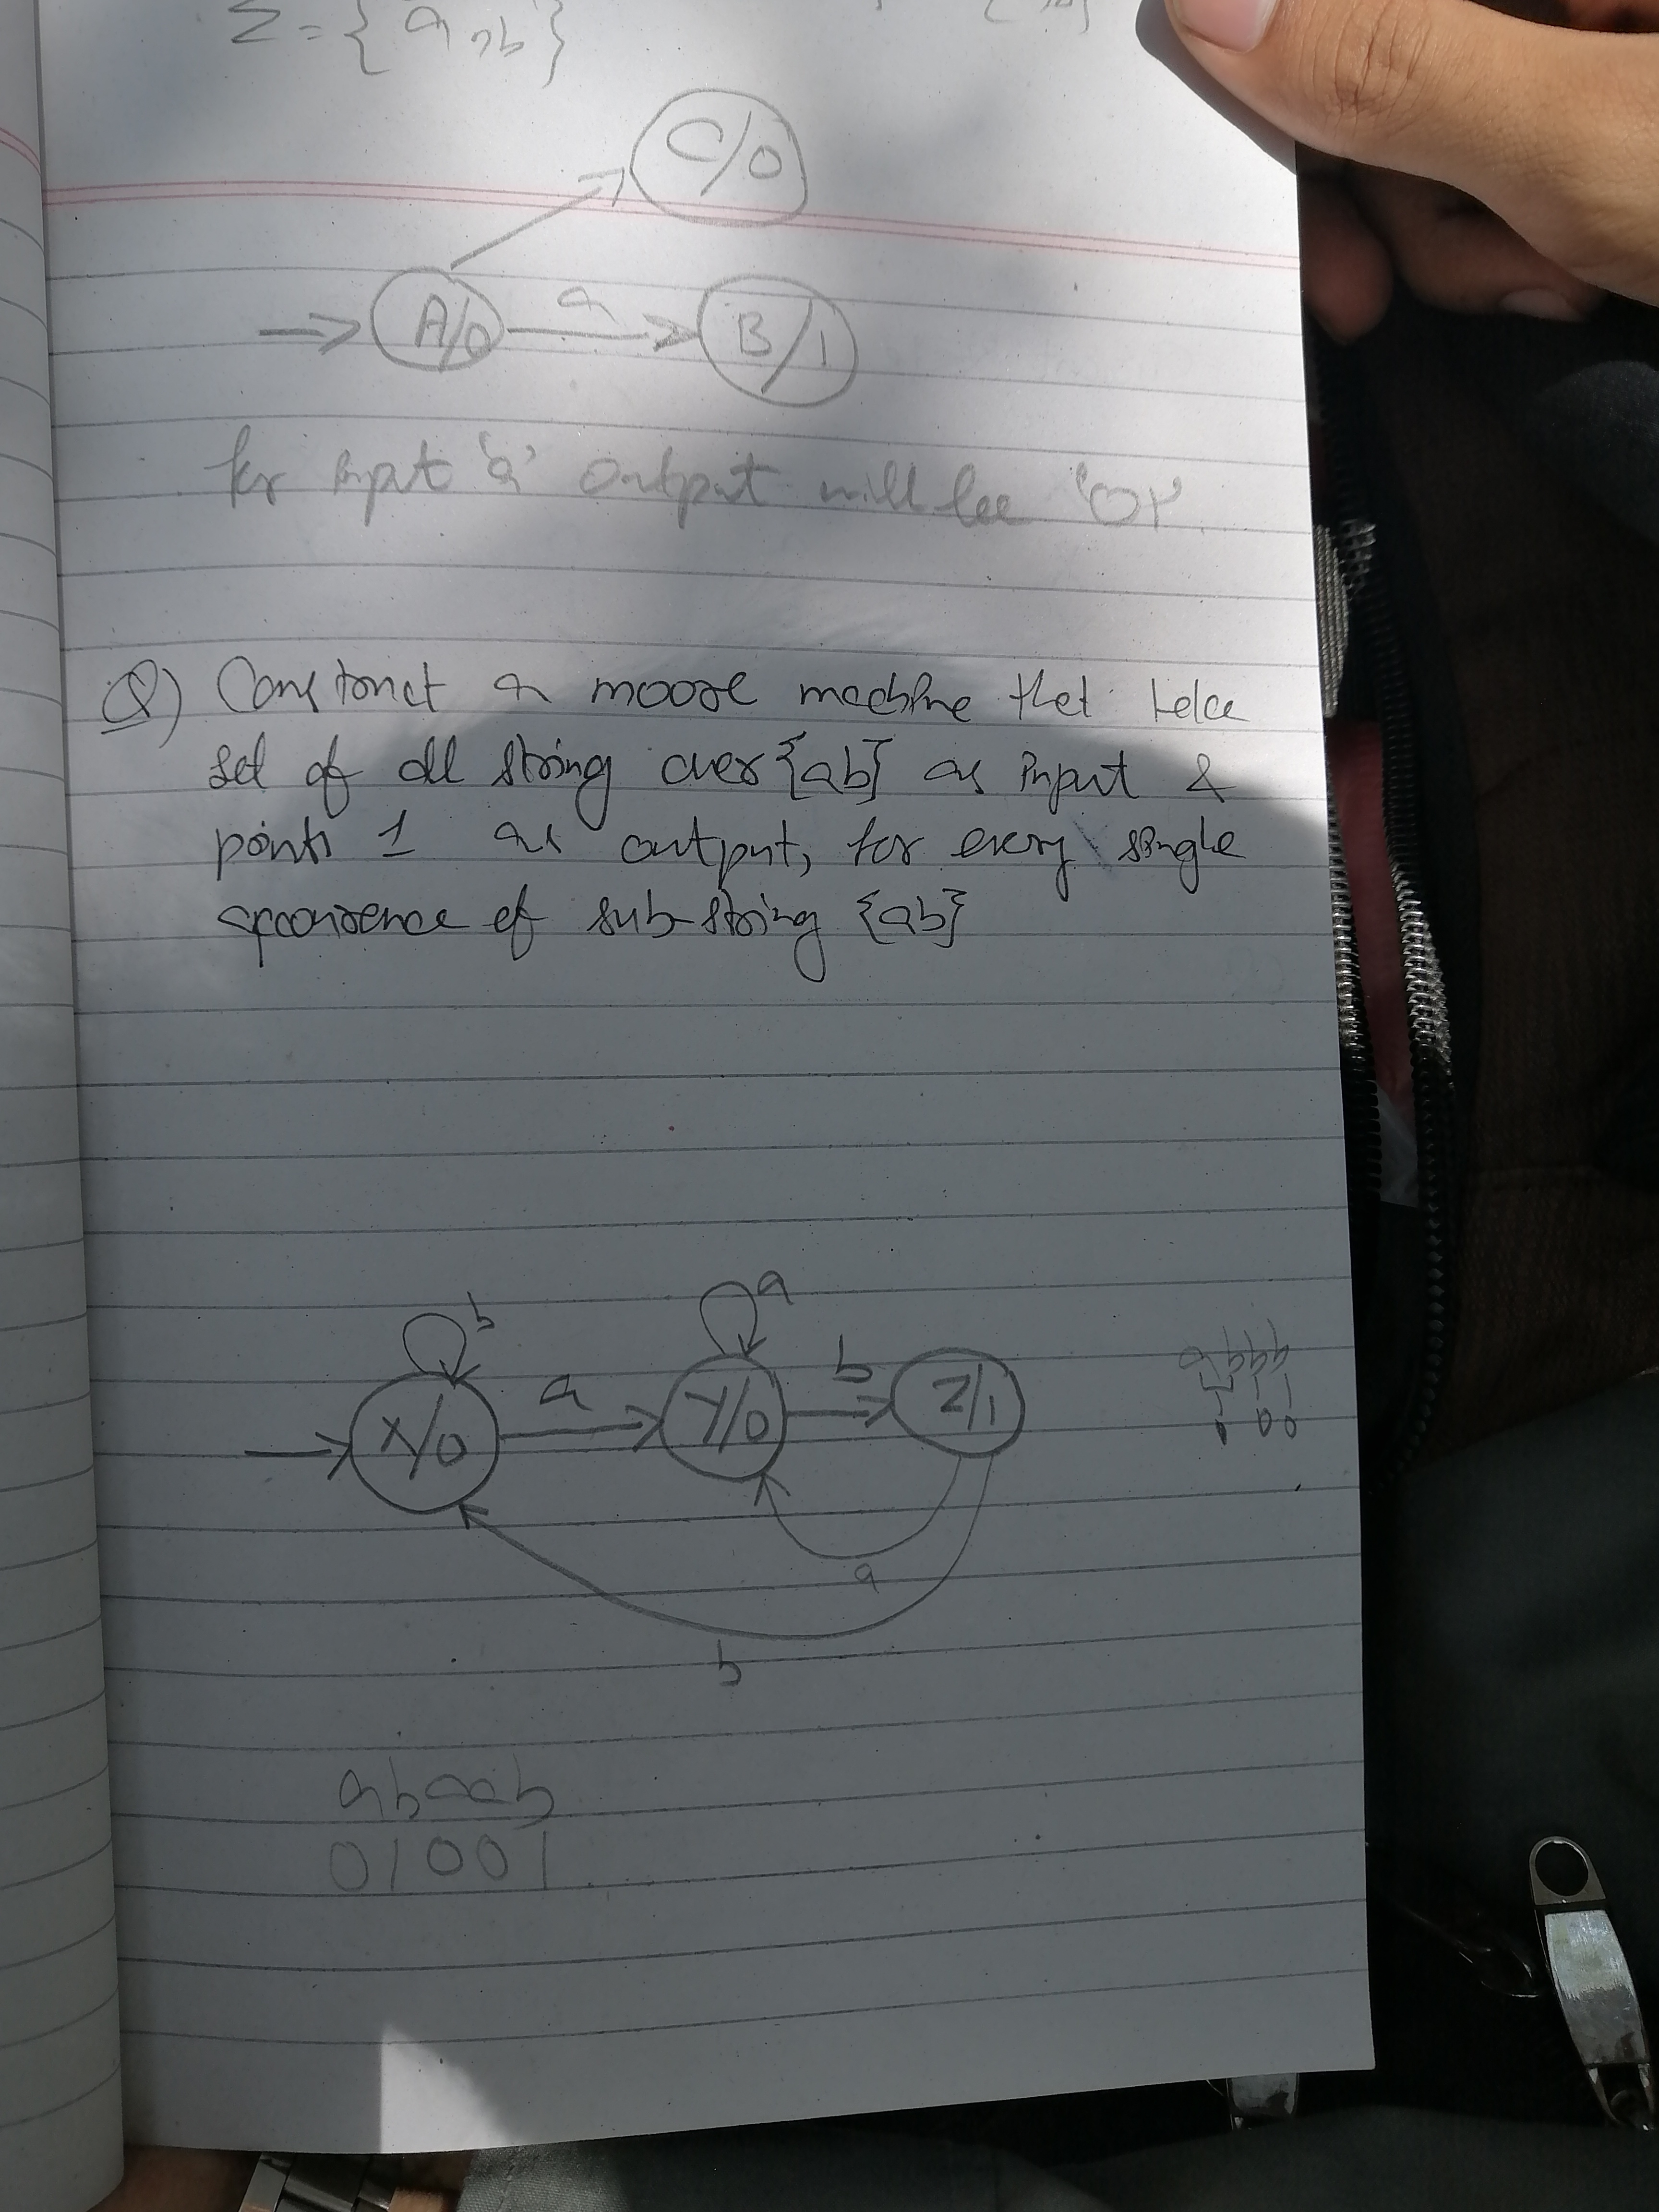 Σ = {a, b}
C/0
A/0 a B/1
for input 'a' output will be '01'
Q) Construct a moore machine that take
set of all string over {ab} as input &
prints 1 as output, for every single
occurence of sub-string {ab}
b a
X/0 a Y/0 b Z/1
a
b
abaab
01001